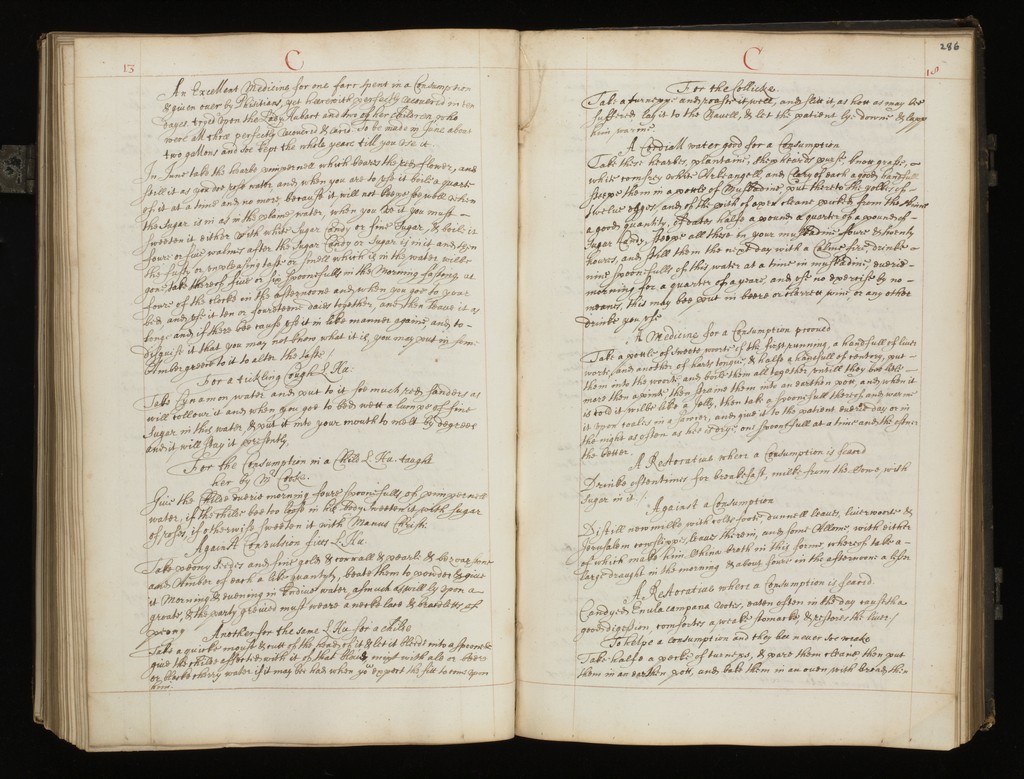 13
C
An Excellent Medicine for one farr spent in a Consumption
& given over by Phisitians, yet herewith perfectly recovered in ten
dayes tryed upon the Lady Hubart and two of her Children, who
were all three perfectly recovered & cured. To be made in June about
two gallons and soe kept the whole yeare till you use it.
In June take the hearbe pimpernell which beares the red flower, and
still it as you doe rose water and when you are to use it boile a quart
of it at a time and no more, because it will not keepe so well when
the Sugar is in as in the plaine water, when you use it you must
sweeten it either with white Sugar Candy or fine Sugar, & boile it
four or five walmes after the Sugar Candy or Sugar is in it and then
the fusty or unpleasing tast or smell which is in the water will be
gon, take thereof five or six spoonfulls in the Morning fasting, at
foure of the clocke in the afternoone and when you goe to your
bed, and use it ten or fourteene daies together, and then leave it as
long: and if there bee cause use it in like manner againe, and to
disguise it that you may not know what it is, you may put in some
Ambergreece to it to alter the taste /
For a tickling Cough L Ha:
Take Cynamon water and put to it soe much red Sanders as
will collour it and when you goe to bed, wett a lumpe of fine
Sugar in this water, & put it into your mouth to melt by degrees
and it will stay it presently.
For the Consumption in a Child L Ha. taught
her by Mr Cooke.
Give the Childe everie morning foure spoonefulls of pimpernell
water, if the childe bee too loose in his body sweeten it with Sugar
of roses, if otherwise sweeten it with Manus Christi.
Against Convulsion fitts L Ha.
Take peony seedes and fine gold & corrall & pearle & bezoar stone
and Amber of each a like quantyty, beate them to powder & give
it Morning & evening in Endive water, as much as will ly upon a
groate, & the party greived must weare a necke lace & bracelets of
peiony
Another for the same L Ha for a childe
Take a quicke mouse & cutt of the head of it & let it bleed into a spoone &
give the childe afflicted with it of that bloud mixt with ale or beere
or blacke cherry water if it may bee had when you expect the fitt to come upon
him.
286
18
C
For the Collicke
Take a turneyne and roaste it well, and slitt it as hott as may bee
suffered lay it to the Navell, & let the patient ly downe & lapp
him warme.
A Cordiall water good for a Consumption
Take these hearbes, plantaine, shepheardes purse, knott grasse,
white comfrey white Archangell, and Clary of each a good handfull
steepe them in a pottle of Muskadine, put thereto the yolkes of
twelve egges, and of the pith of oxen cleane picked from the skinne
a good quantity, of dates halfe a pound a quarter of a pound of
Sugar Candy, steepe all these in your muskadine foure & twenty
houres, and still them in the next day with a Calme fire, drinke
nine spoonefulls of this water at a time in muskadine, everie
morning for a quarter of a yeare, and use no exercise by no
meanes, this may bee put in beere or clarrett wine, or any other
drinke you use.
A Medicine for a Consumption proved
Take a pottle of sweete worte of the first running, a handfull of liver
wort, and another of harts tongue & halfe a handfull of centory, put
them into the worte, and boile them all together, untill they bee little
more then a pinte, then straine them into an earthen pott, and when it
is cold it wilbe like a Jelly, then take a spoonfull thereof and warme
it upon coales in a sawcer, and give it to the patient everie day or in
the night as often as hee is dry: one spoonfull at a time and the oftner
the better.
A Restorative where a Consumption is feared
Drinke oftentimes for breakefast, milke from the Cowe, with
Sugar in it. /
Against a Consumption
Distill new milke with colts foote, dunnell leaves, liverworte &
Jerusalem cowslippes, leaves therein, and some Allome, with either
of which make him China broth in this forme, whereof take a
large draught in the morning & about foure in the afternoone a lesser
A Restorative where a Consumption is feared
Candyed Enula campana Rootes, eaten often in the day causeth a
good digestion, comfortes a weake stomacke, & restores the liver /
To helpe a consumption and they bee never soe weake
Take halfe a pecke of turneps, & pare them cleane then put
them in an earthen pott, and bake them in an oven with bread, then